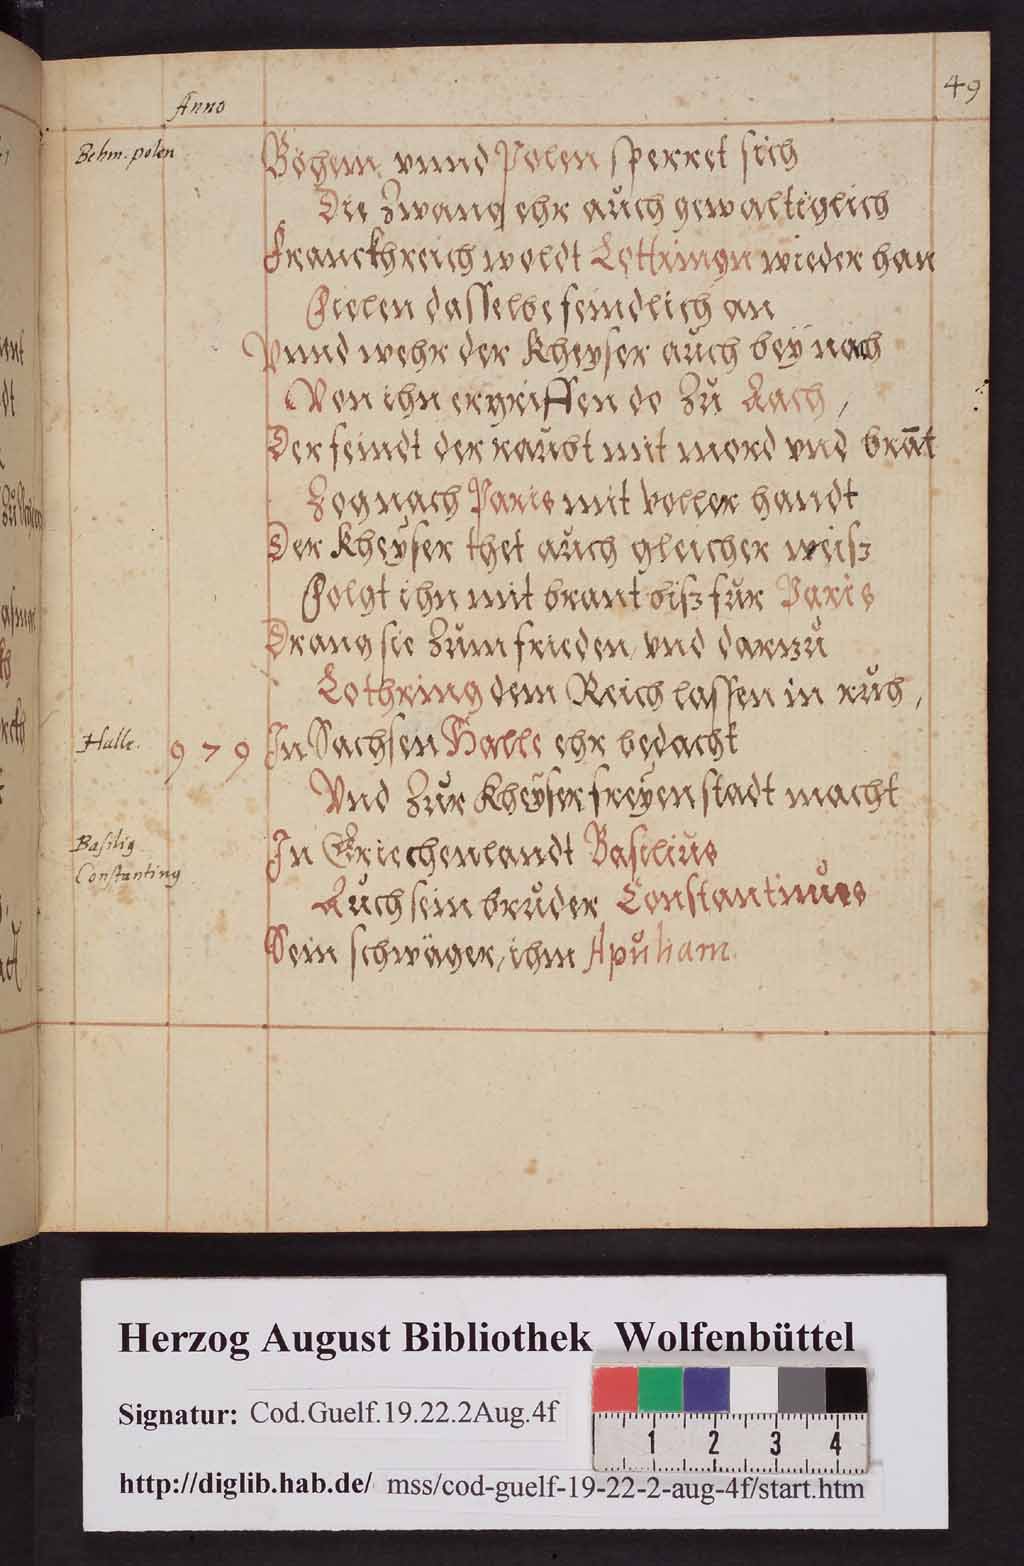 49
Anno
Behm. polen
Böhem vnnd Polen sperret sich
Die Zwang ehr auch gewaltiglich
Franckhreich woldt Lottringn wieder han
Fielen dasselbe feindlich an
Vnnd wehr der Kheyser auch beÿ nach
Von ihn ergriffen do Zu Aach,
Der feindt der raubt mit mord vnd bra̅t
Zog nach Paris mit voller handt
Der Kheÿser thet auch gleicher weisz
Folgt ihn mit brant bisz fur Paris
Drang sie Zum frieden vnd darzu
Lothring dem Reich lassen in ruh,
Halle.
979 In Sachsen Halle ehr bedacht
Vnd Zur Kheÿser freÿen stadt macht
Basilig
Constanting
In Griechenlandt Basilius
Auch sein bruder Constantinus
Sein schwäger, ihm Apuliam.
Herzog August Bibliothek Wolfenbüttel
Signatur: Cod.Guelf.19.22.2Aug.4f
1 2 3 4
http://diglib.hab.de/ mss/cod-guelf-19-22-2-aug-4f/start.htm